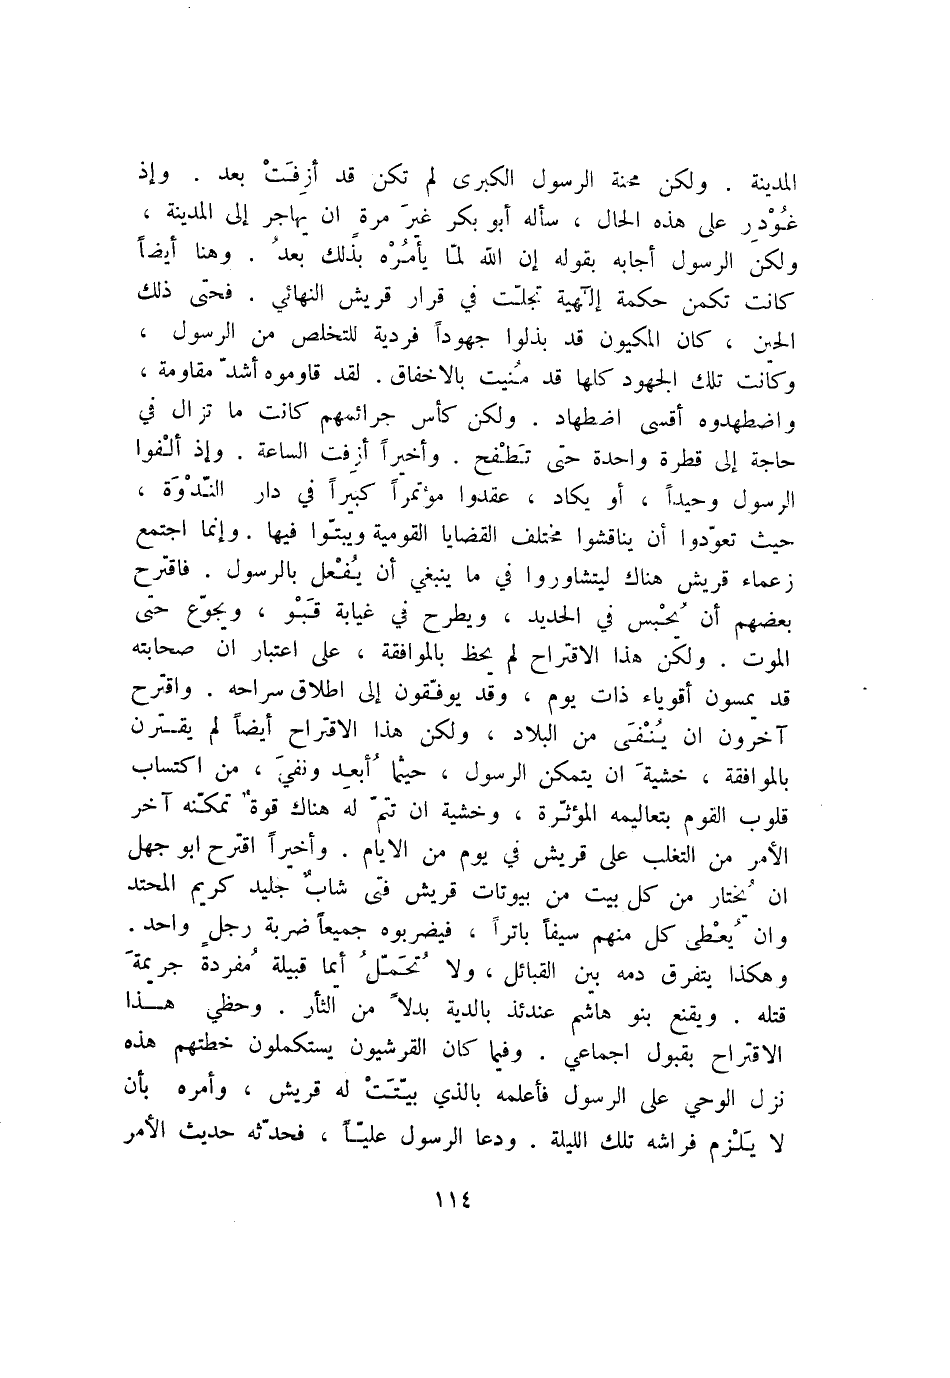 المدينة . ولكن محنة الرسول الكبرى لم تكن قد أزِفَتْ بعد . وإذ
غُوْدِر على هذه الحال ، سأله أبو بكر غيرَ مرةٍ ان يهاجر إلى المدينة ،
ولكن الرسول أجابه بقوله إن الله لمّا يأمُرْه بذلك بعدُ . وهنا أيضاً
كانت تكمن حكمة إلٓهية تجلّت في قرار قريش النهائي . فحتّى ذلك
الحين ، كان المكيون قد بذلوا جهوداً فردية للتخلص من الرسول ،
وكانت تلك الجهود كلها قد مُنيت بالاخفاق . لقد قاوموه أشدّ مقاومة ،
واضطهدوه أقسى اضطهاد . ولكن كأس جرائمهم كانت ما تزال في
حاجة إلى قطرة واحدة حتّى تَطْفح . وأخيراً أزِفت الساعة . وإذ ألْفوا
الرسول وحيداً ، أو يكاد ، عقدوا مؤتمراً كبيراً في دار النَّدْوَة ،
حيث تعوّدوا أن يناقشوا مختلف القضايا القومية ويبتّوا فيها . وإنما اجتمع
زعماء قريش هناك ليتشاوروا في ما ينبغي أن يُفْعل بالرسول . فاقترح
بعضهم أن يُحْبس في الحديد ، ويطرح في غيابة قَبْو ، ويجوّع حتّى
الموت . ولكن هذا الاقتراح لم يحظ بالموافقة ، على اعتبار ان صحابته
قد يمسون أقوياء ذات يوم ، وقد يوفّقون إلى اطلاق سراحه . واقترح
آخرون ان يُنْفَى من البلاد ، ولكن هذا الاقتراح أيضاً لم يقــترن
بالموافقة ، خشيةَ ان يتمكن الرسول ، حيثما أُبعد ونفيَ ، من اكتساب
قلوب القوم بتعاليمه المؤثّرة ، وخشية ان تتمّ له هناك قوةٌ تمكّنه آخر
الأمر من التغلب على قريش في يوم من الايام . وأخيراً اقترح ابو جهل
ان يُختار من كل بيت من بيوتات قريش فتى شابٌ جليد كريم المحتد
وان يُعْطى كل منهم سيفاً باتراً ، فيضربوه جميعاً ضربة رجلٍ واحد .
وهكذا يتفرق دمه بين القبائل ، ولا تُحَمّلُ أيما قبيلة مُفردةً جريمةَ
قتله . ويقنع بنو هاشم عندئذ بالدية بدلاً من الثأر . وحظي هــذا
الاقتراح بقبول اجماعي . وفيما كان القرشيون يستكملون خطتهم هذه
نزل الوحي على الرسول فأعلمه بالذي بيّتَتْ له قريش ، وأمره بأن
لا يَلْزم فراشه تلك الليلة . ودعا الرسول عليّاً ، فحدّثه حديث الأمر
١١٤